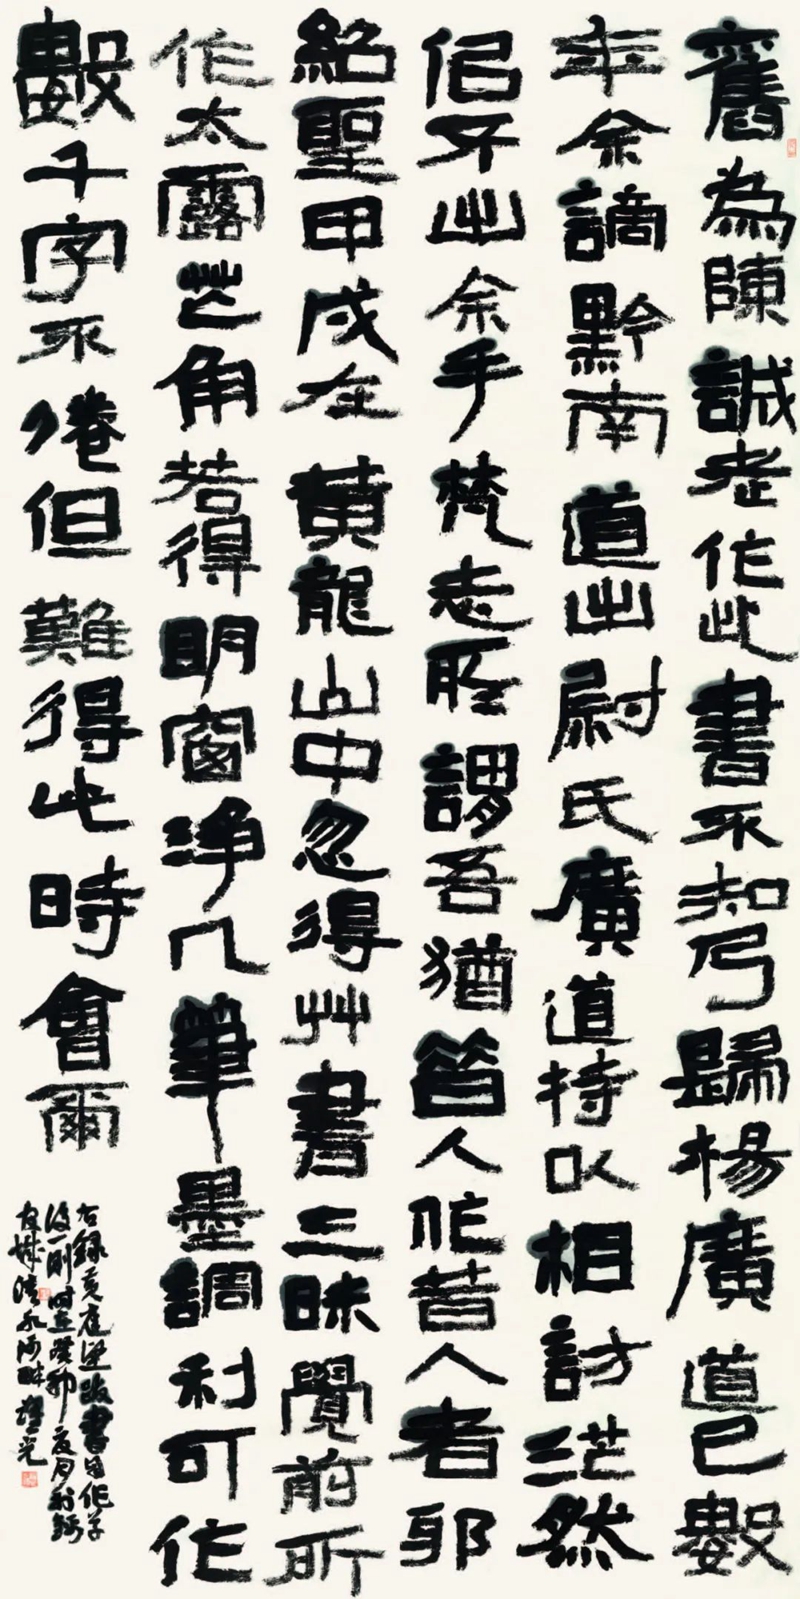 舊為陳誠老作此書不知乃歸楊廣道已數
年余謫黔南道出尉氏廣道持以相訪茫然
佀不出余手梵志所謂吾猶昔人非昔人者邪
紹聖甲戌在黃龍山中忽得艸書三昧覺前所
作太露芒角若得明窗淨几筆墨調利可作
數千字不倦但難得此時會爾
右錄黃庭堅跋書自作草
後一則時在癸卯夏月於
古城清水河畔